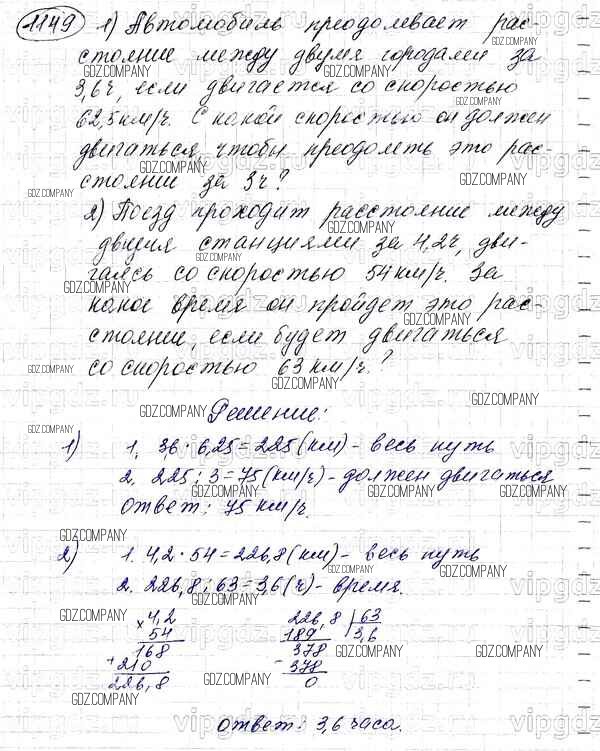 1149 1) Автомобиль преодолевает рас-
стояние между двумя городами за
3,6ч, если двигается со скоростью
62,5км/ч. С какой скоростью он должен
двигаться, чтобы преодолеть это рас-
стояние за 3ч?
2) Поезд проходит расстояние между
двумя станциями за 4,2ч, дви-
гаясь со скоростью 54км/ч. За
какое время он пройдет это рас-
стояние, если будет двигаться
со скоростью 63км/ч.?
Решение:
1) 1. 3,6 · 6,25 = 225(км) - весь путь
2. 225 : 3 = 75(км/ч) - должен двигаться
Ответ: 75 км/ч.
2) 1. 4,2 · 54 = 226,8(км) - весь путь
2. 226,8 : 63 = 3,6(ч) - время.
× 4,2 226,8 | 63
54 189 3,6
168 378
+ 210 - 378
226,8 0
Ответ: 3,6 часа.
GDZ.COMPANY
vipgdz.ru